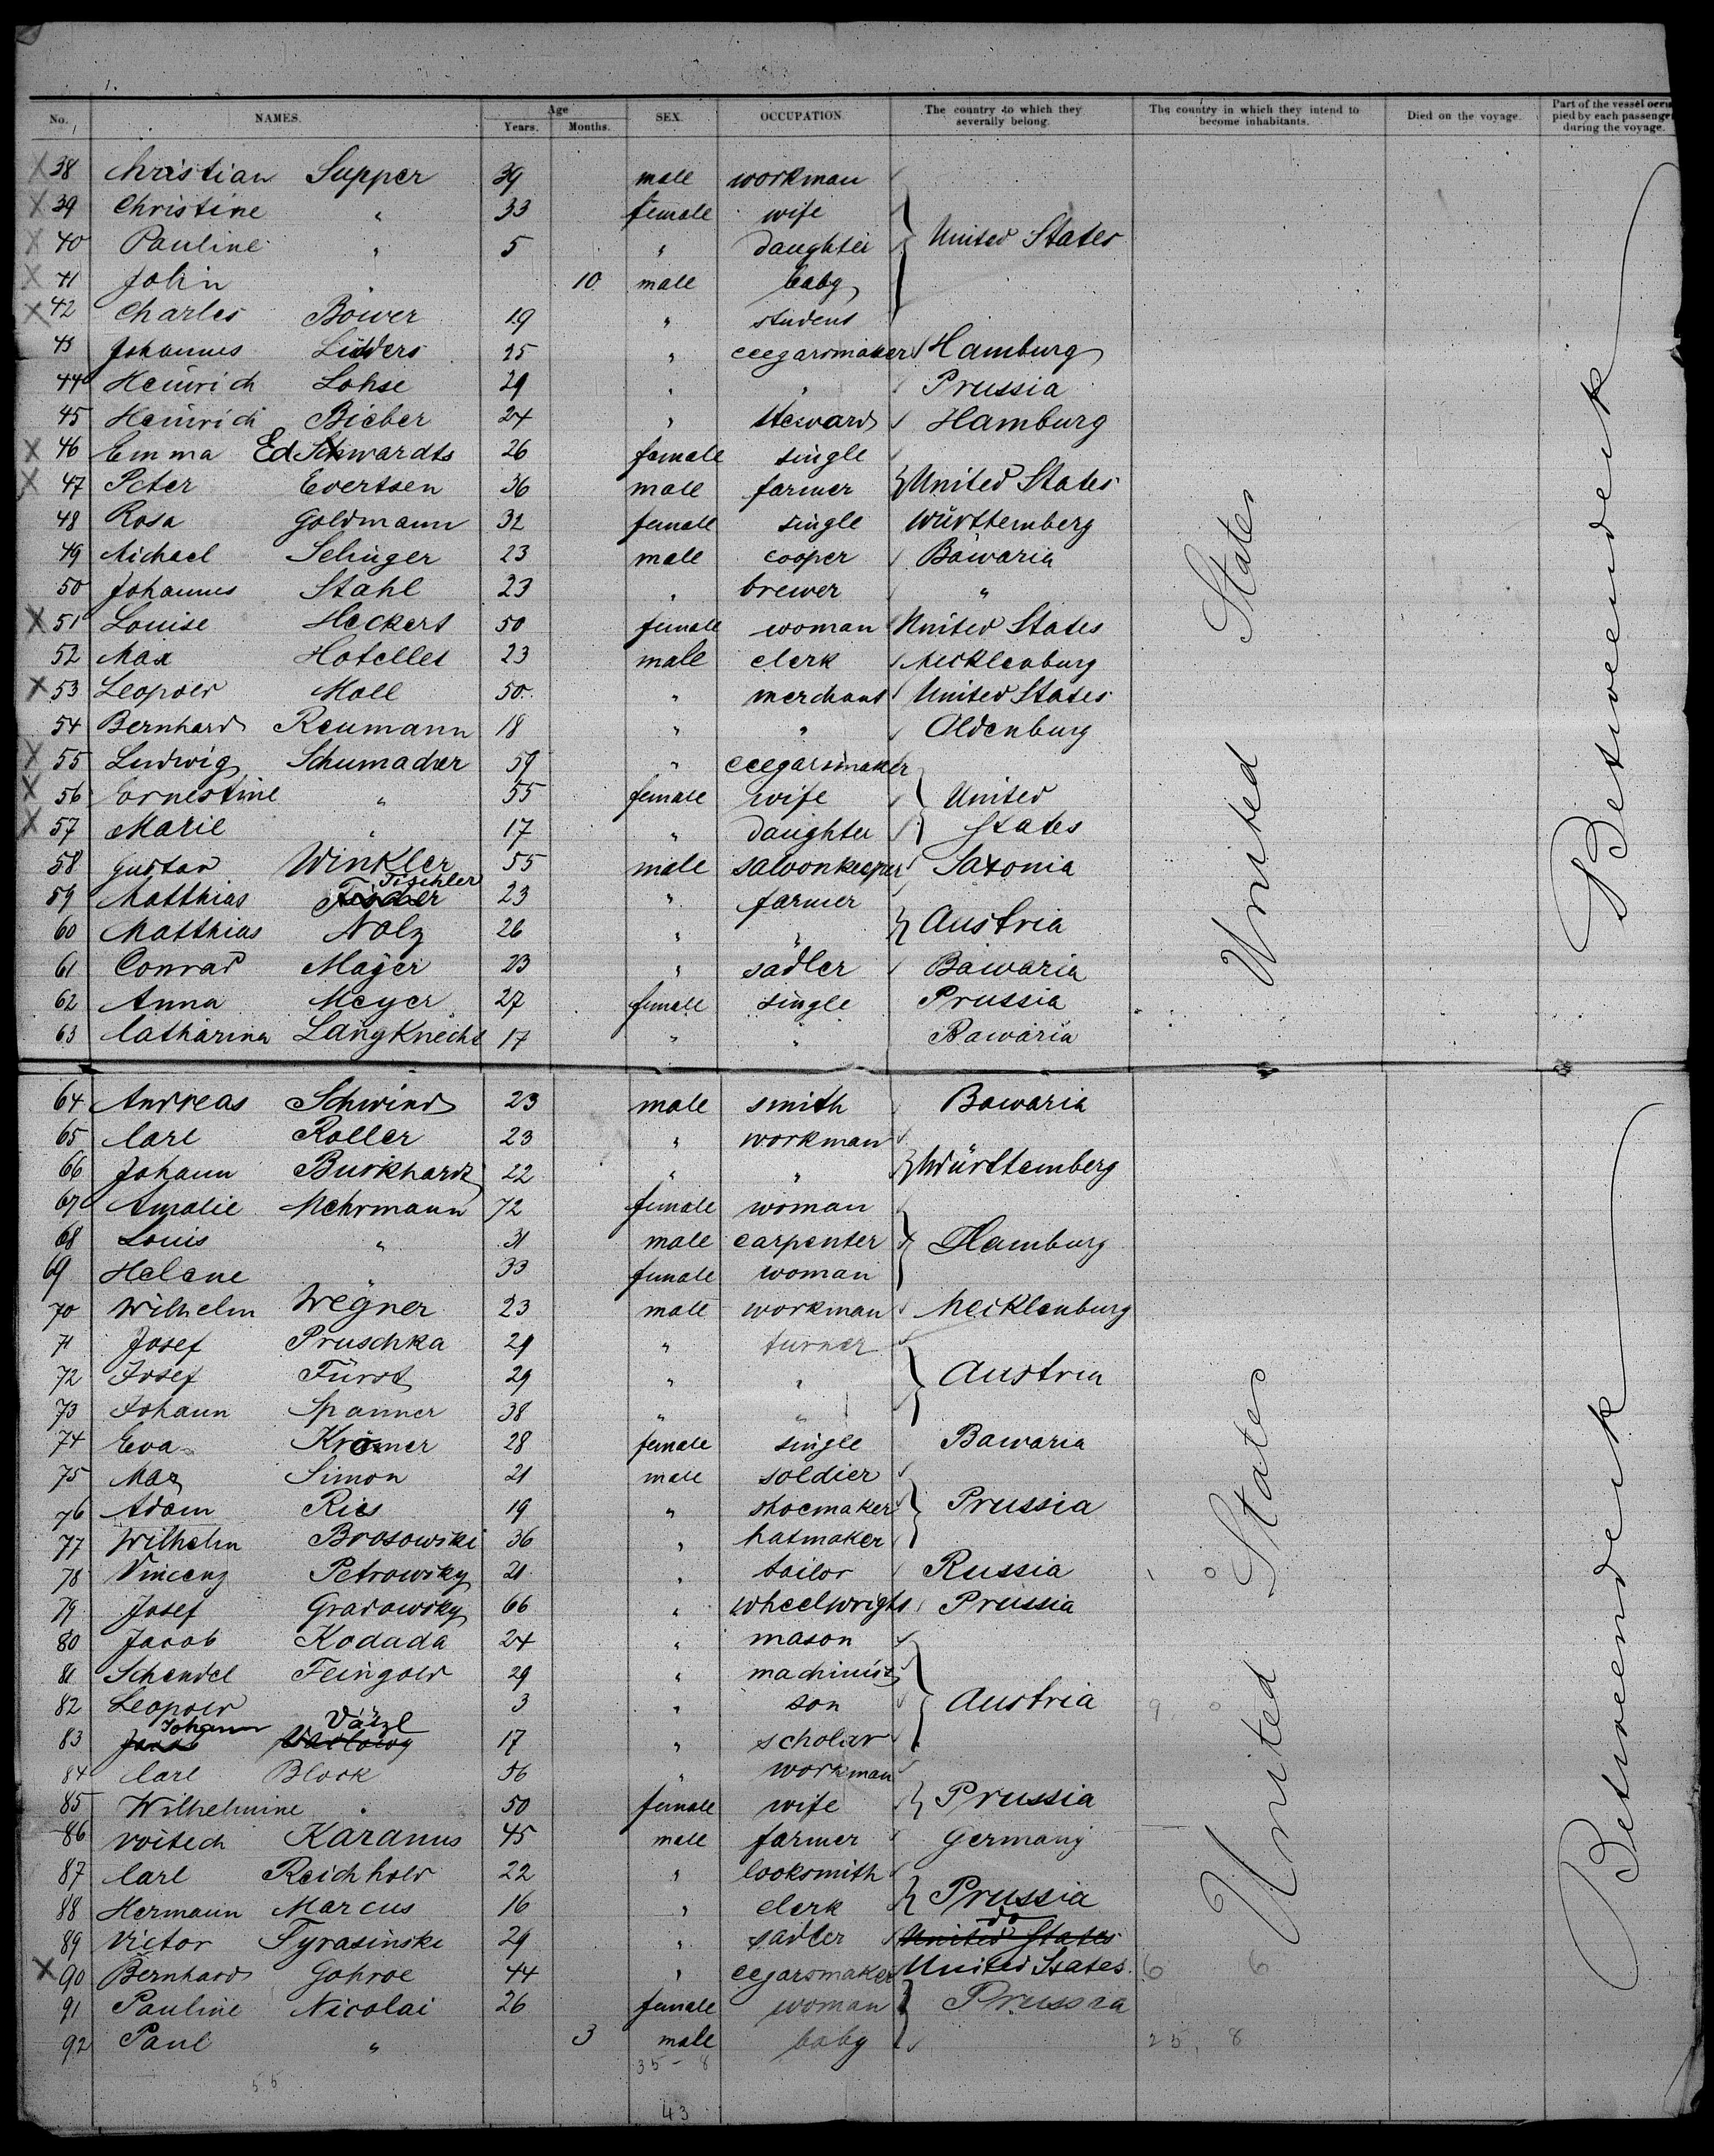 No. NAMES. Age Years. Months. SEX. OCCUPATION. The country to which they severally belong. The country in which they intend to become inhabitants. Died on the voyage. Part of the vessel occupied by each passenger during the voyage.
X 38 Christian Supper 39 male workman
X 39 Christine " 33 female wife
X 40 Pauline " 5 " daughter } United States
X 41 John " 10 male baby
X 42 Charles Bower 19 " student
43 Johannes Lüdders 25 " ceegarsmaker Hamburg
44 Heinrich Lohse 29 " " Prussia
45 Heinrich Bieber 24 " steward Hamburg
X 46 Emma Edwardts 26 female single
X 47 Peter Evertsen 36 male farmer } United States
48 Rosa Goldmann 32 female single Württemberg
49 Michael Selinger 23 male cooper Bawaria
50 Johannes Stahl 23 " brewer "
X 51 Louise Heckert 50 female woman United States
52 Max Hotellet 23 male clerk Mecklenburg
X 53 Leopold Moll 50 " merchant United States
54 Bernhard Reumann 18 " " Oldenburg
X 55 Ludwig Schumacher 59 " ceegarsmaker
X 56 Ernestine " 55 female wife } United
X 57 Marie " 17 " daughter States
58 Gustav Winkler 55 male saloonkeeper Saxonia
59 Matthias Tischler 23 " farmer
60 Matthias Nolz 26 " " } Austria
61 Conrad Mayer 23 " sadler Bawaria
62 Anna Meyer 27 female single Prussia
63 Catharina Langknecht 17 " " Bawaria
United States
Betweendeck
64 Andreas Schwind 23 male smith Bawaria
65 Carl Roller 23 " workman
66 Johann Burkhardt 22 " " } Württemberg
67 Amalie Mehrmann 72 female woman
68 Louis " 31 male carpenter } Hamburg
69 Helene " 33 female woman
70 Wilhelm Wegner 23 male workman Mecklenburg
71 Josef Pruschka 29 " turner
72 Josef Fürst 29 " " } Austria
73 Johann Spanner 38 " "
74 Eva Kromer 28 female single Bawaria
75 Max Simon 21 male soldier
76 Adam Ries 19 " shoemaker } Prussia
77 Wilhelm Brosowski 36 " hatmaker
78 Vincenz Petrowsky 21 " tailor Russia
79 Josef Gradowsky 66 " wheelwright Prussia
80 Jacob Kodada 24 " mason
81 Schendel Feingold 29 " machinist
82 Leopold 3 " son } Austria
83 Johann Vätzl 17 " scholar
84 Carl Block 56 " workman
85 Wilhelmine " 50 female wife } Prussia
86 Voitech Karanus 45 male farmer Germany
87 Carl Reichhold 22 " looksmith
88 Hermann Marcus 16 " clerk } Prussia
89 Victor Tyrasinski 29 " sadler United States do
X 90 Bernhard Gohroe 44 " cegarsmaker United States 6 6
91 Pauline Nicolai 26 female woman } Prussia
92 Paul " 3 male baby 25, 8
35 - 8
55
43
United States
Betweendeck